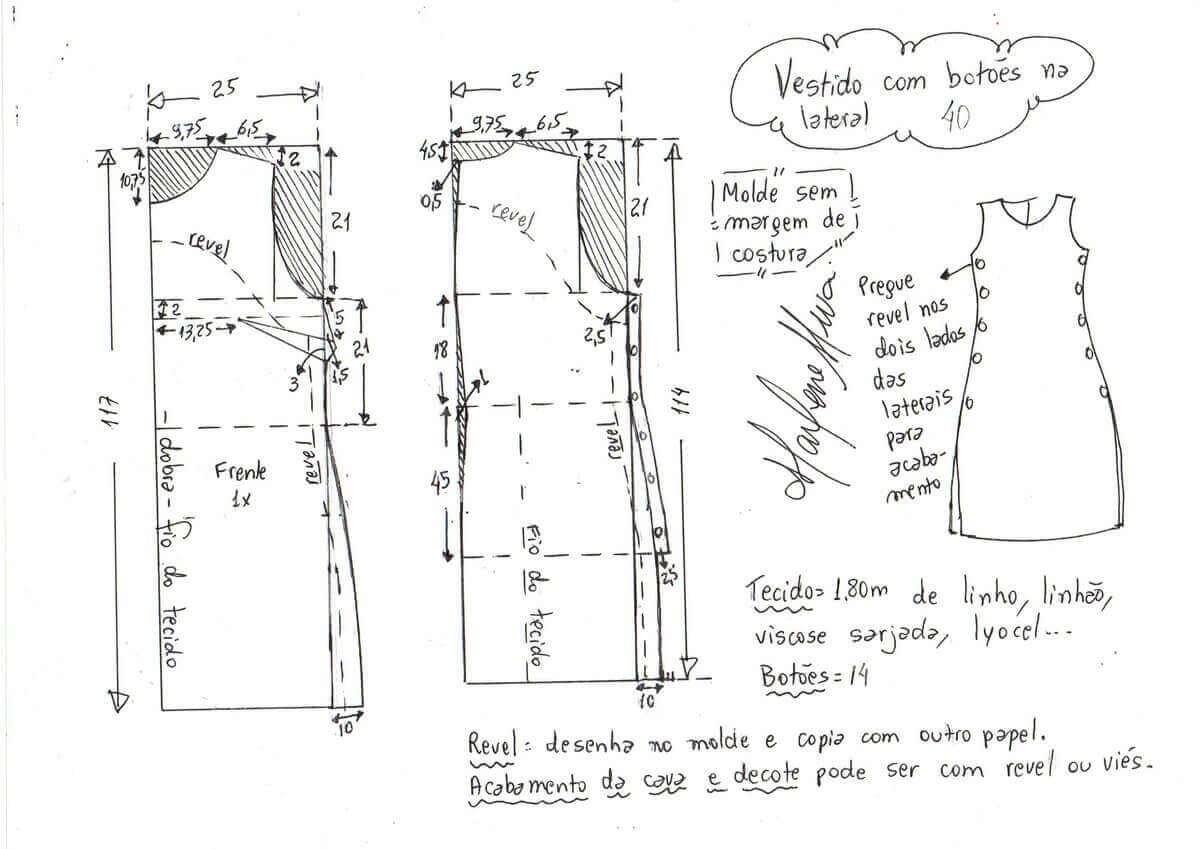 Vestido com botões na
lateral 40
Molde sem
margem de
costura
Pregue
revel nos
dois lados
das
laterais
para
acaba-
mento
25
9,75 6,5
2
10,75
21
revel
2
13,25
5
21
1,5
3
117
Revel
Frente
1x
dobra - fio do tecido
10
25
9,75 6,5
4,5
2
0,5
21
revel
2,5
18
1
114
Revel
45
Fio do tecido
2,5
10
Tecido= 1,80m de linho, linhão,
viscose sarjada, lyocel...
Botões = 14
Revel = desenha no molde e copia com outro papel.
Acabamento da cava e decote pode ser com revel ou viés.